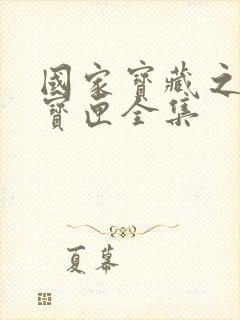 國家寶藏之
寶匣全集
夏幕